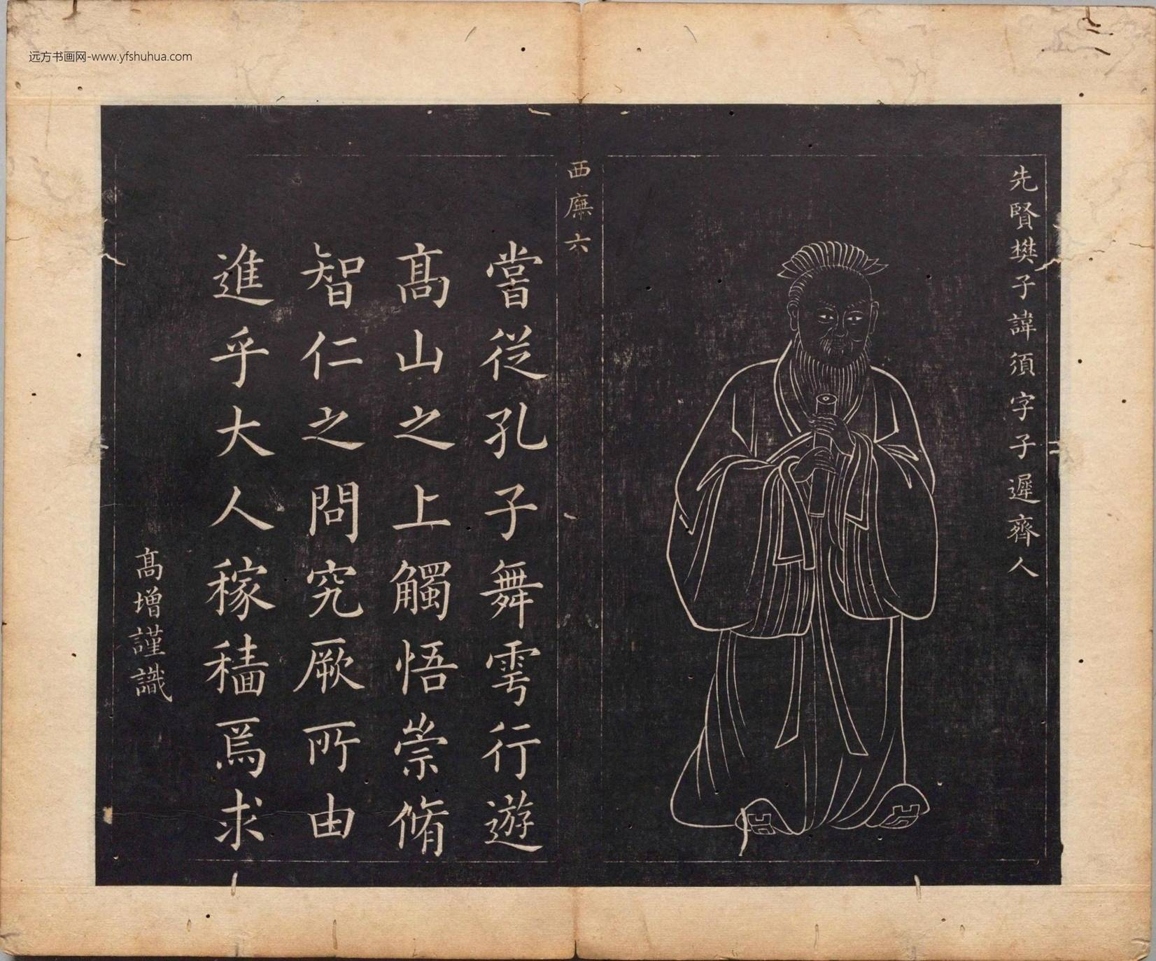 远方书画网-www.yfshuhua.com
先賢樊子諱須字子遲齊人
西廡六
嘗從孔子舞雩行遊
髙山之上觸悟崇脩
智仁之問究厥所由
進乎大人稼穡焉求
髙增謹識